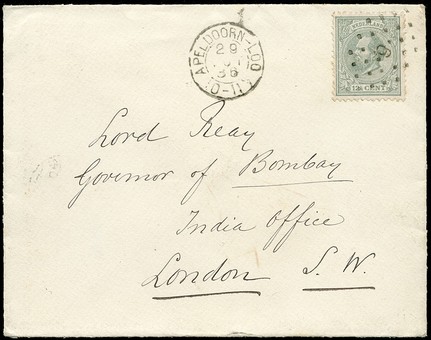 APELDOORN-LOO
29
86
NEDERLAND
12½ CENT
Lord Reay
Governor of Bombay
India Office
London S. W.